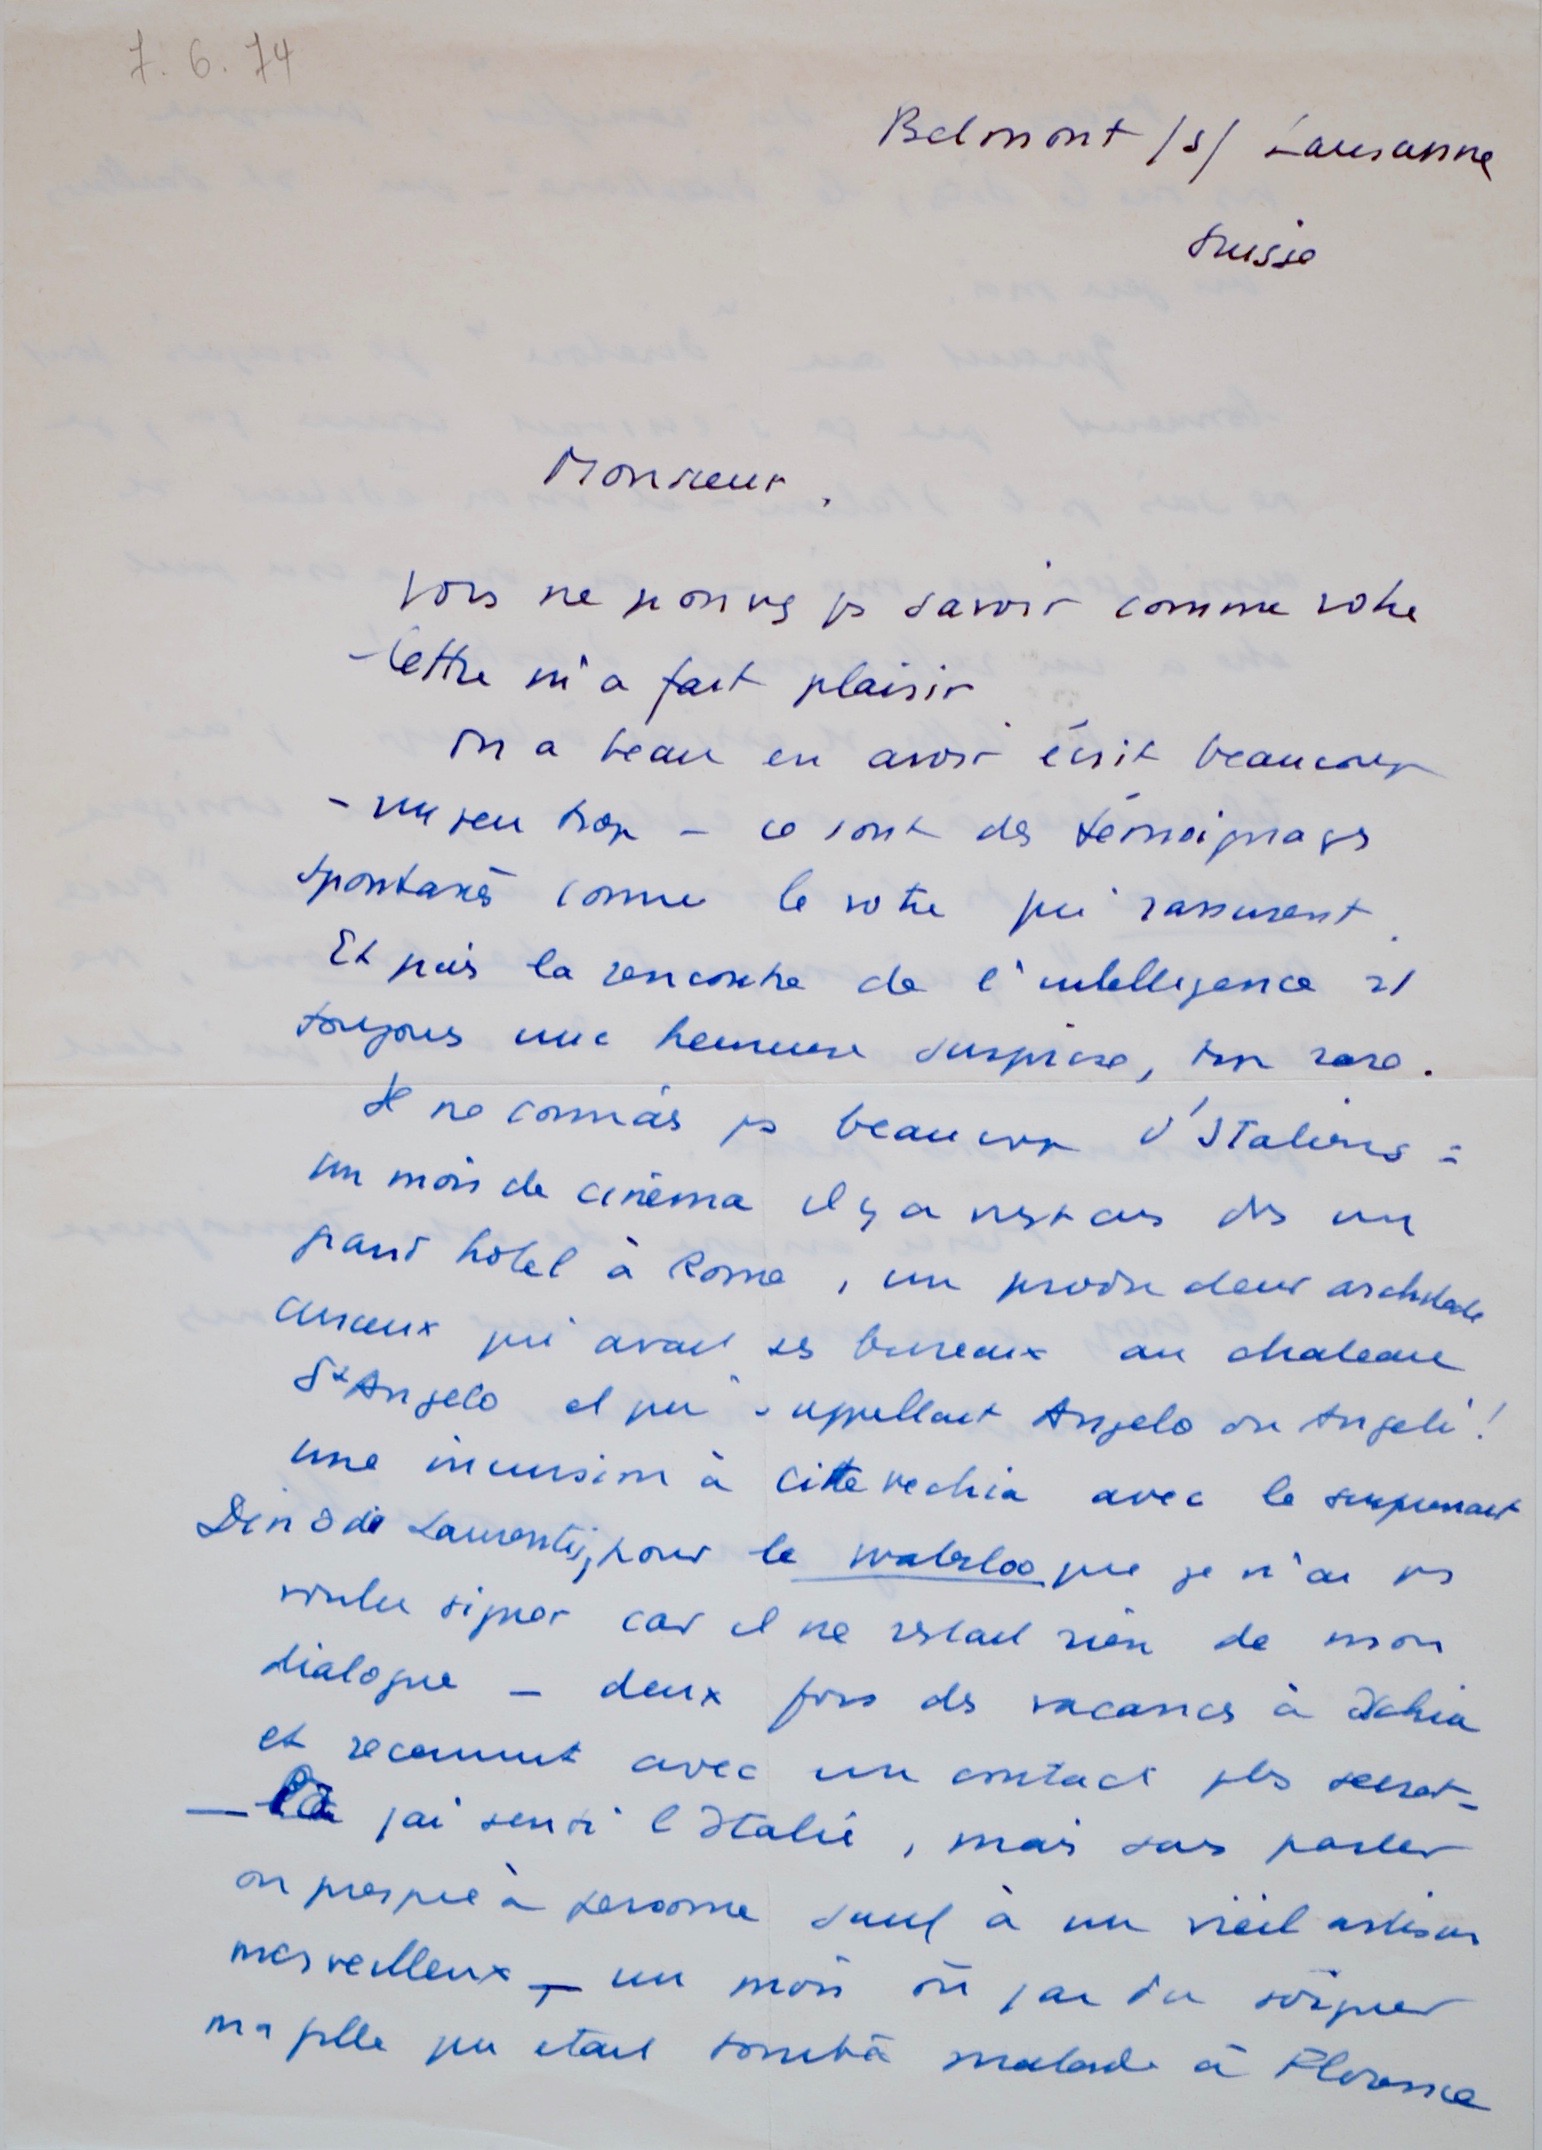 7. 6. 74
Belmont /s/ Lausanne
Suisse
Monsieur,
Vous ne pouvez ps savoir comme votre
lettre m'a fait plaisir
On a beau en avoir écrit beaucoup
- un peu trop - ce sont des témoignages
spontanés comme le votre qui rassurent.
Et puis la rencontre de l'intelligence est
toujours une heureuse surprise, trop rare.
Je ne connais ps beaucoup d'Italiens :
un mois de cinéma il y a vingt ans ds un
grand hotel à Rome, un producteur
curieux qui avait ses bureaux au chateau
St Angelo et qui s'appellait Angelo ou Angeli !
une incursion à Citte vechia avec le surprenant
Dino de Laurentis, pour le Waterloo que je n'ai ps
voulu signer car il ne restait rien de mon
dialogue - deux fois des vacances à Ischia
et recemment avec un contact pls secret -
- là j'ai senti l'Italie, mais sans parler
ou presque à personne sauf à un vieil artisan
merveilleux - un mois où j'ai du soigner
ma fille qui etait tombée malade à Florence